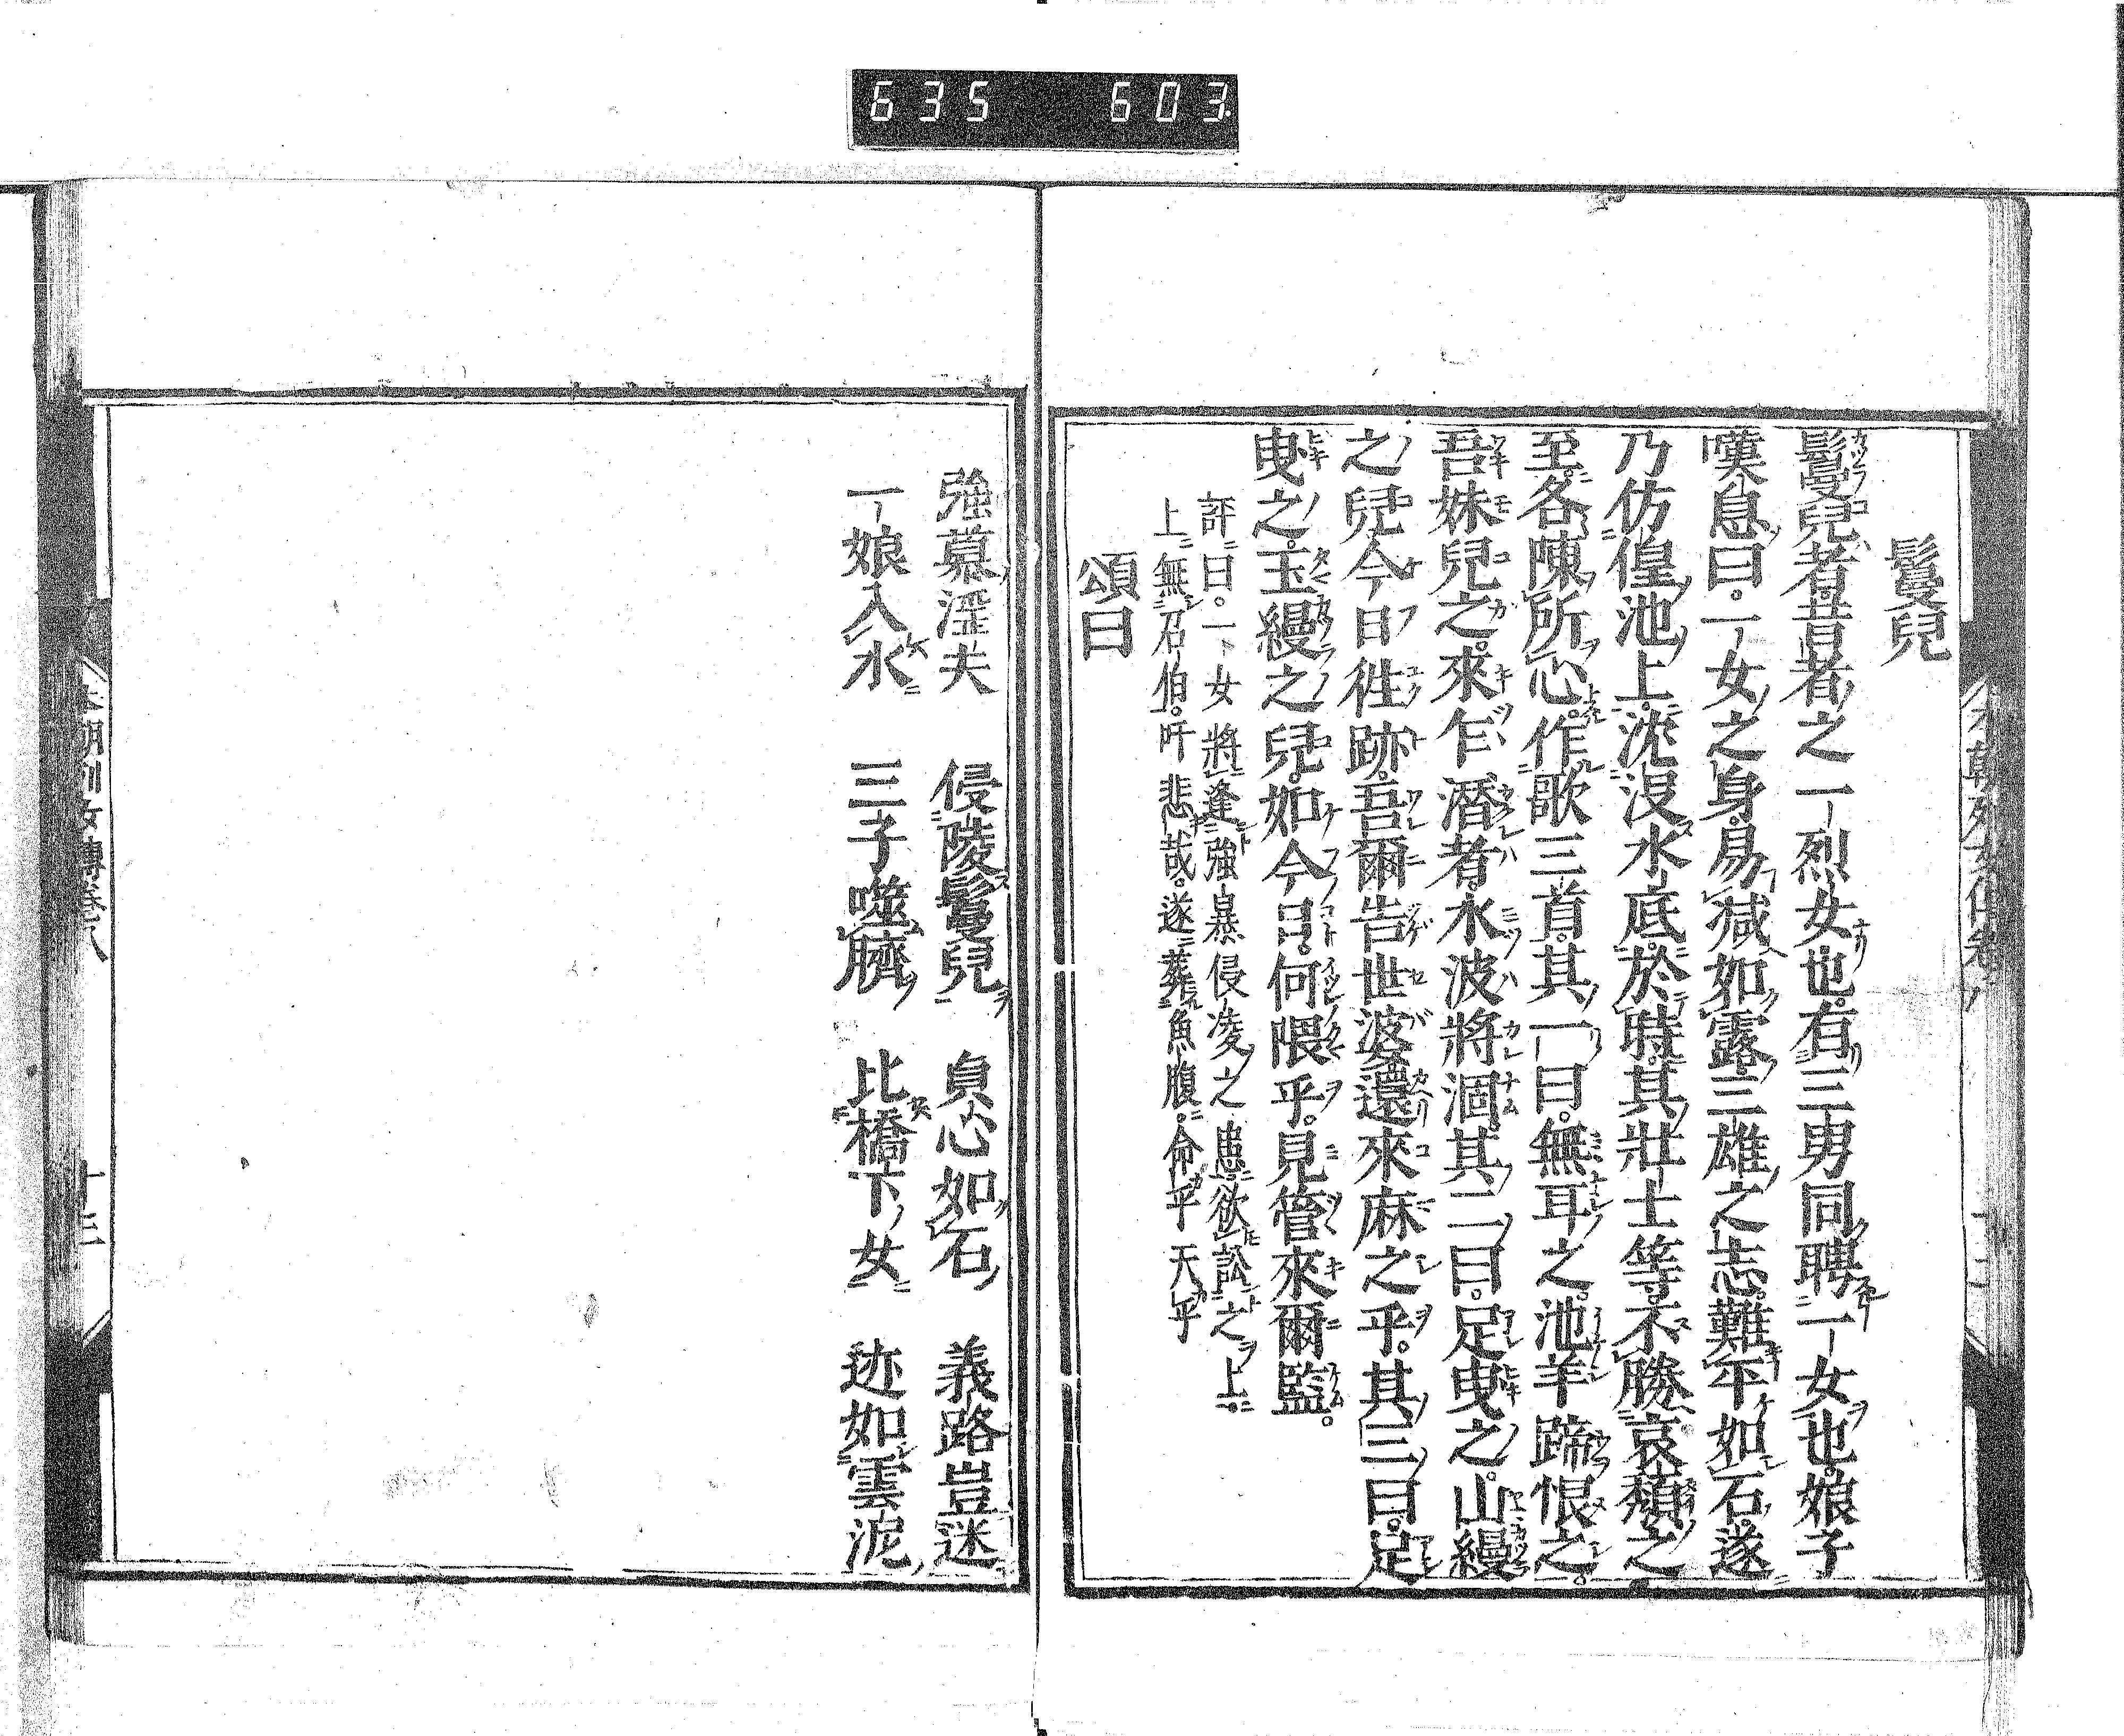 635 603
鬘兒
鬘兒者昔者之一烈女也有三男同聘一女也娘子
嘆息曰一女之身易滅如露三雄之志難平如石遂
乃仿偟池上沈沒水底於時其壯士等不勝哀頽之
至各陳所心作歌三首其一曰無耳之池羊蹄恨之
吾妹兒之來乍潛者水波將涸其二曰足曳之山縵
之兒今日徃跡吾爾告世婆還來麻之乎其三曰足
曳之玉縵之兒如今日何隈乎見管來爾監
評曰一女將逢強暴侵凌之患欲訟之上
上無召伯吁悲哉遂葬魚腹命乎天乎
頌曰
本朝列女傳卷八
十二
強慕淫夫 侵陵鬘兒 貞心如石 義路豈迷
一娘入水 三子噬臍 比橋下女 迹如雲泥
本朝列女傳卷八
十三